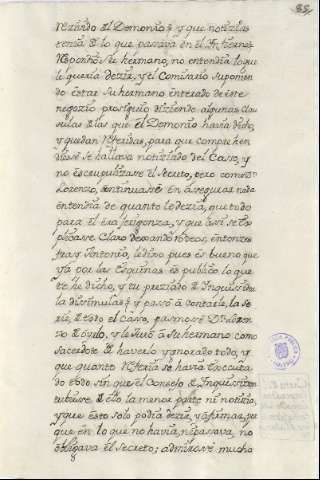 85
rezando el Demonio, y que noticias
tenia de lo que pasava en el Infierno,
Respondio Su hermano, no entendia lo que
le queria dezir, y el Comisario suponien
do estar Su hermano enterado de este
negozio prosiguio diziendo algunas clau
sulas de las que el Demonio havia dicho,
y quedan referidas, para que comprehen
diese se hallava notiziado del Caso, y
no escrupulizase el Secreto, pero como Dn
Lorenzo, continuase en asegurar nada
entendia de quanto le dezia, que todo
para el era jerigonza, y que asi se ex
plicase Claro dexando rodeos, entonzes
fray Antonio, le dixo pues es bueno que
ya por las Esquinas es publico lo que
te he dicho, y tu preziado de Inquisidor
la disimulas, y pasó a contarle, la se
rie de todo el Caso, pasmose Dn Loren
zo de oyrlo, y le Juró a Su hermano como
Sacerdote de haverlo ygnorado todo, y
que quanto referia se havia executa
do esto sin que el Consejo de Inquisicion
tubiese de ello la menor parte ni noticia,
y que esto solo podia dezir, y afirmar, por
que en lo que no havia, ni pasava, no
obligava el Secreto; admirose mucho